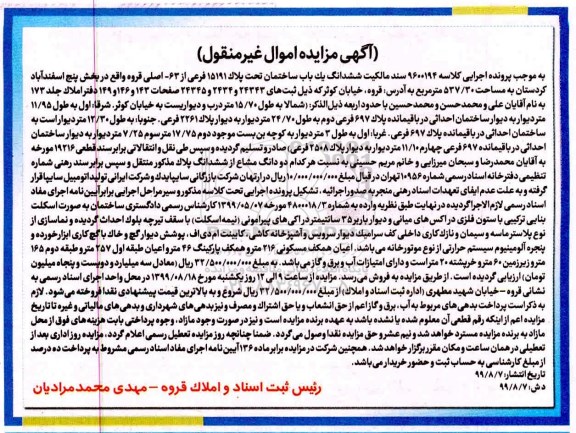 (آگهی مزایده اموال غیرمنقول)
به موجب پرونده اجرایی کلاسه ۹۶۰۰۱۹۴ سند مالکیت ششدانگ یک باب ساختمان تحت پلاک ۱۵۱۹۱ فرعی از ۶۳- اصلی قروه واقع در بخش پنج اسفندآباد
کردستان به مساحت ۵۳۷/۳۰ مترمربع به آدرس: قروه، خیابان کوثر که ذیل ثبت‌های ۲۴۳۴۳ و ۲۴۳۴۴ و ۲۴۳۴۵ صفحات ۱۴۳ و ۱۴۶ و ۱۴۹ دفتر املاک جلد ۱۷۳
به نام آقایان علی و محمدحسن و محمدحسین با حدود اربعه ذیل‌الذکر: (شمالا به طول ۱۵/۷۰ متر درب و دیواریست به خیابان کوثر. شرقا: اول به طول ۱۱/۹۵
متر دیوار به دیوار ساختمان احداثی در باقیمانده پلاک ۶۹۷ فرعی دوم به طول ۲۴/۷۰ متر دیوار به دیوار پلاک ۲۲۶۱ فرعی. جنوبا: به طول ۱۲/۳۰ متر دیوار است به
ساختمان احداثی در باقیمانده پلاک ۶۹۷ فرعی. غربا: اول به طول ۳ متر دیوار به کوچه بن‌بست موجود دوم ۱۷/۷۵ متر سوم ۷/۲۵ متر دیوار به دیوار ساختمان
احداثی در باقیمانده ۶۹۷ فرعی چهارم ۱۱/۱۰ متر دیوار به دیوار پلاک ۲۵۰۸ فرعی) صادر و تسلیم گردیده و سپس طی نقل و انتقالاتی برابر سند قطعی ۱۹۲۱۶ مورخه
به آقایان محمدرضا و سبحان میرزایی و خانم مریم هر کدام دو دانگ مشاع از ششدانگ پلاک مذکور منتقل و سپس برابر سند رهنی شماره
تنظیمی دفترخانه اسناد رسمی شماره ۱۰۹۵۶ تهران در قبال مبلغ ۱۰/۰۰۰/۰۰۰/۰۰۰ ریال در ارتهان شرکت بازرگانی سایپایدک و شرکت ایرانی تولید اتومبیل سایپا قرار
گرفته و به علت عدم ایفای تعهدات اسناد رهنی منجر به صدور اجرائیه، تشکیل پرونده اجرایی تحت کلاسه مذکور و سیر مراحل اجرایی برابر آیین نامه اجرای مفاد
اسناد رسمی لازم الاجرا گردیده در نهایت طبق نظریه وارده به شماره ۴۸۰۰۰۱۸/۳ مورخه ۱۳۹۹/۰۵/۰۷ کارشناس رسمی دادگستری ساختمان به صورت اسکلت
بنایی ترکیبی با ستون فلزی در اکس‌های میانی و دیوار باربر ۳۵ سانتیمتر در اکس‌های پیرامونی (نیمه اسکلت) با سقف تیرچه بلوک احداث گردیده و نماسازی از
نوع پلاستر ماسه و سیمان و نازک‌کاری داخلی کف سرامیک دیوار سرویس و آشپزخانه کاشی، کابینت ام دی اف، پوشش دیوار گچ و خاک با گچ‌کاری ابزار خورده و
پنجره آلومینیوم سیستم حرارتی از نوع موتورخانه می‌باشد. اعیان همکف مسکونی ۲۱۶ متر و همکف پارکینگ ۴۶ متر و اعیان طبقه اول ۲۵۷ متر و طبقه دوم ۱۶۵
متر و زیرزمین ۶۰ متر و خرپشته ۲۰ متر است و دارای امتیازات آب و برق و گاز می‌باشد. به مبلغ ۳۲/۵۰۰/۰۰۰/۰۰۰ ریال (معادل سه میلیارد و دویست و پنجاه میلیون
تومان) ارزیابی گردیده است. از طریق مزایده به فروش می‌رسد. مزایده از ساعت ۹ الی ۱۲ روز یکشنبه مورخ ۱۳۹۹/۰۸/۱۸ در محل واحد اجرای اسناد رسمی به
نشانی قروه - خیابان شهید مطهری (اداره ثبت اسناد و املاک) از مبلغ ۳۲/۵۰۰/۰۰۰/۰۰۰ ریال شروع و به بالاترین قیمت پیشنهادی نقدا فروخته می‌شود. لازم
به ذکر است پرداخت بدهی های مربوط به آب، برق و گاز اعم از حق انشعاب و یا حق اشتراک و مصرف و نیز بدهی های شهرداری و بدهی های مالیاتی و غیره تا تاریخ
مزایده اعم از اینکه رقم قطعی آن معلوم شده یا نشده باشد به عهده برنده مزایده است و نیز در صورت وجود مازاد، وجوه پرداختی بابت هزینه های فوق از محل
مازاد به برنده مزایده مسترد خواهد شد و نیم عشر و حق مزایده نقدا وصول می گردد. ضمنا چنانچه روز مزایده تعطیل رسمی اعلام گردد، مزایده روز اداری بعد از
تعطیلی در همان ساعت و مکان مقرر برگزار خواهد شد. همچنین شرکت در مزایده برابر ماده ۱۳۶ آیین نامه اجرای مفاد اسناد رسمی مشروط به پرداخت ده درصد
از مبلغ کارشناسی به حساب ثبت و حضور خریدار می‌باشد.
تاریخ انتشار: ۹۹/۸/۷
دش: ۹۹/۸/۷
رئیس ثبت اسناد و املاک قروه – مهدی محمدمرادیان